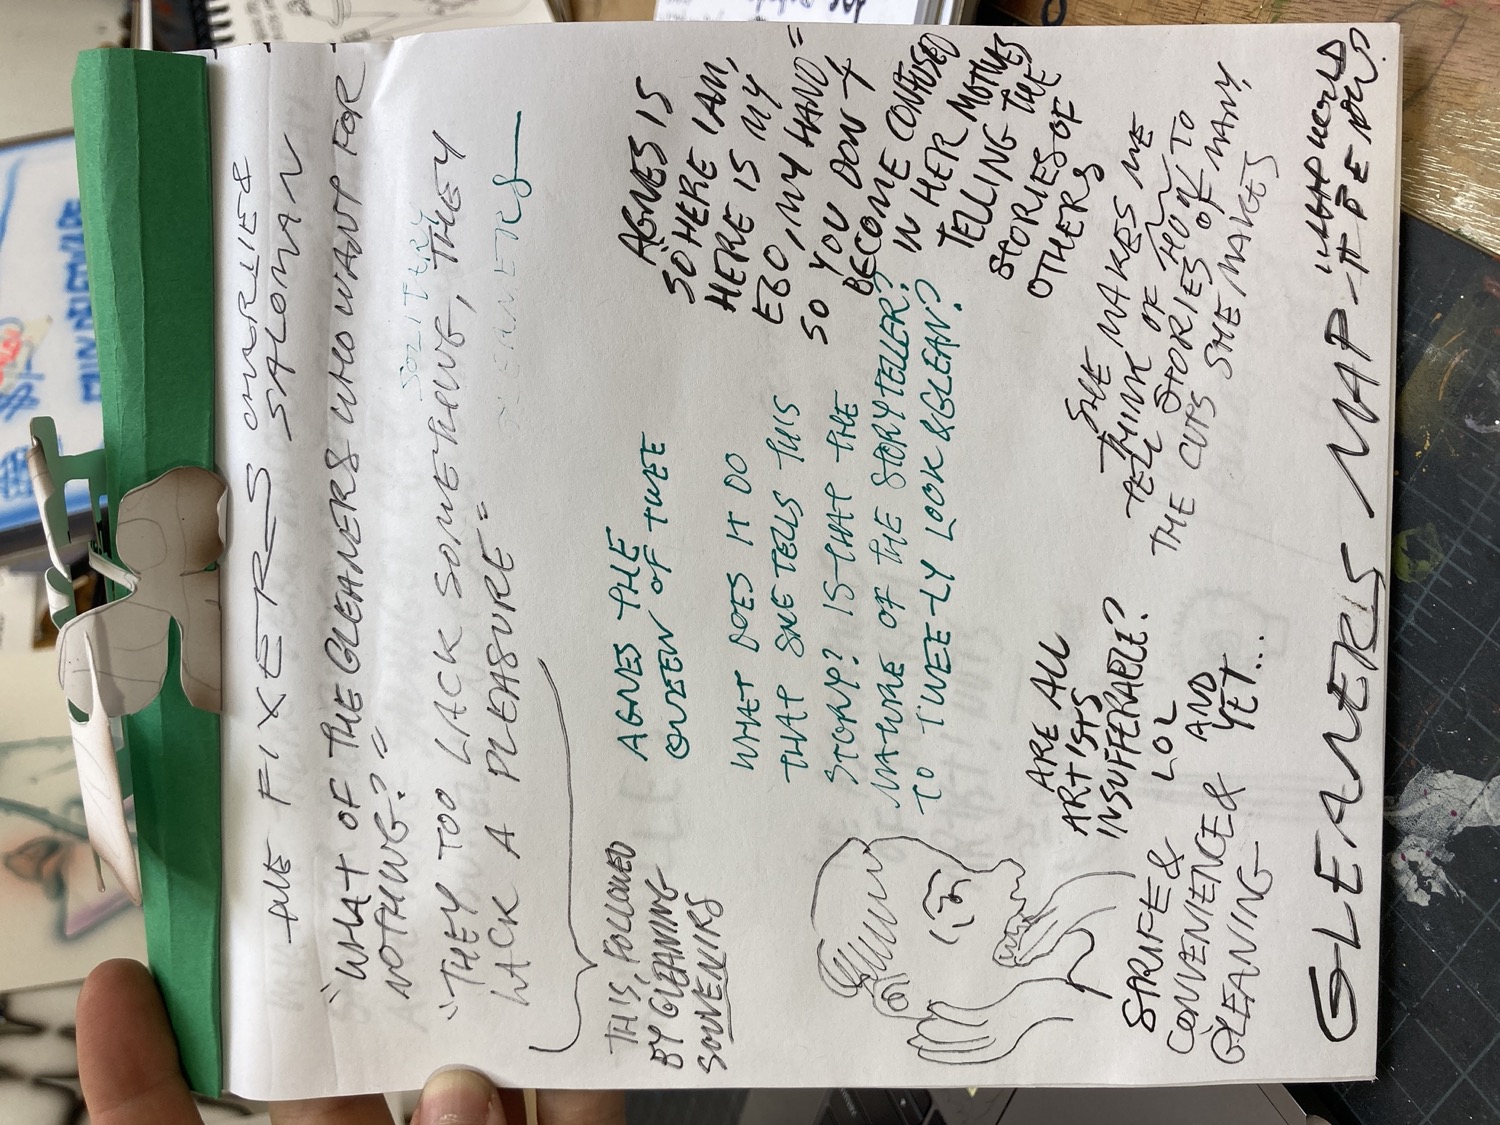 THE FIXERS
SALOMAN
"WHAT OF THE GLEANERS WHO WANT FOR
NOTHING?"
SOLITERY
"THEY TOO LACK SOMETHING, THEY
LACK A PLEASURE"
THIS, FOLLOWED
BY GLEANING
SOUVENIRS
AGNES THE
QUEEN OF TWEE
WHAT DOES IT DO
THAT SHE TELLS THIS
STORY? IS THAT THE
NATURE OF THE STORYTELLER?
TO TWEE-LY LOOK & GLEAN?
AGNES IS
SO "HERE I AM,
HERE IS MY
EGO, MY HAND"
SO YOU DON'T
BECOME CONFUSED
IN HER MOTIVES
TELLING THE
STORIES OF
OTHERS
ARE ALL
ARTISTS
INSUFFERABLE?
LOL
AND
YET...
SHE MAKES ME
THINK OF HOW TO
TELL STORIES OF MANY
THE CUTS SHE MAKES
STRIFE &
CONVENIENCE &
GLEANING
GLEANERS MAP-